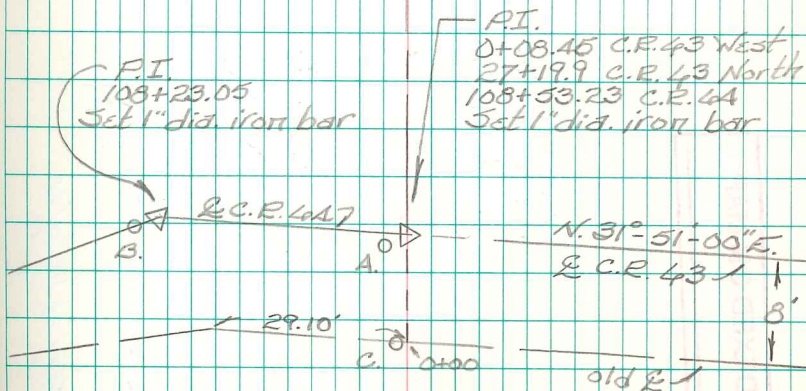 P.I.
108+23.05
Set 1" dia. iron bar
P.I.
0+08.45 C.R. 43 West
27+19.9 C.R. 43 North
108+53.23 C.R. 64
Set 1" dia. iron bar
℄ C.R. 64
B.
A.
N. 31°-51'-00" E.
℄ C.R. 43
8'
29.10'
C.
0+00
old ℄